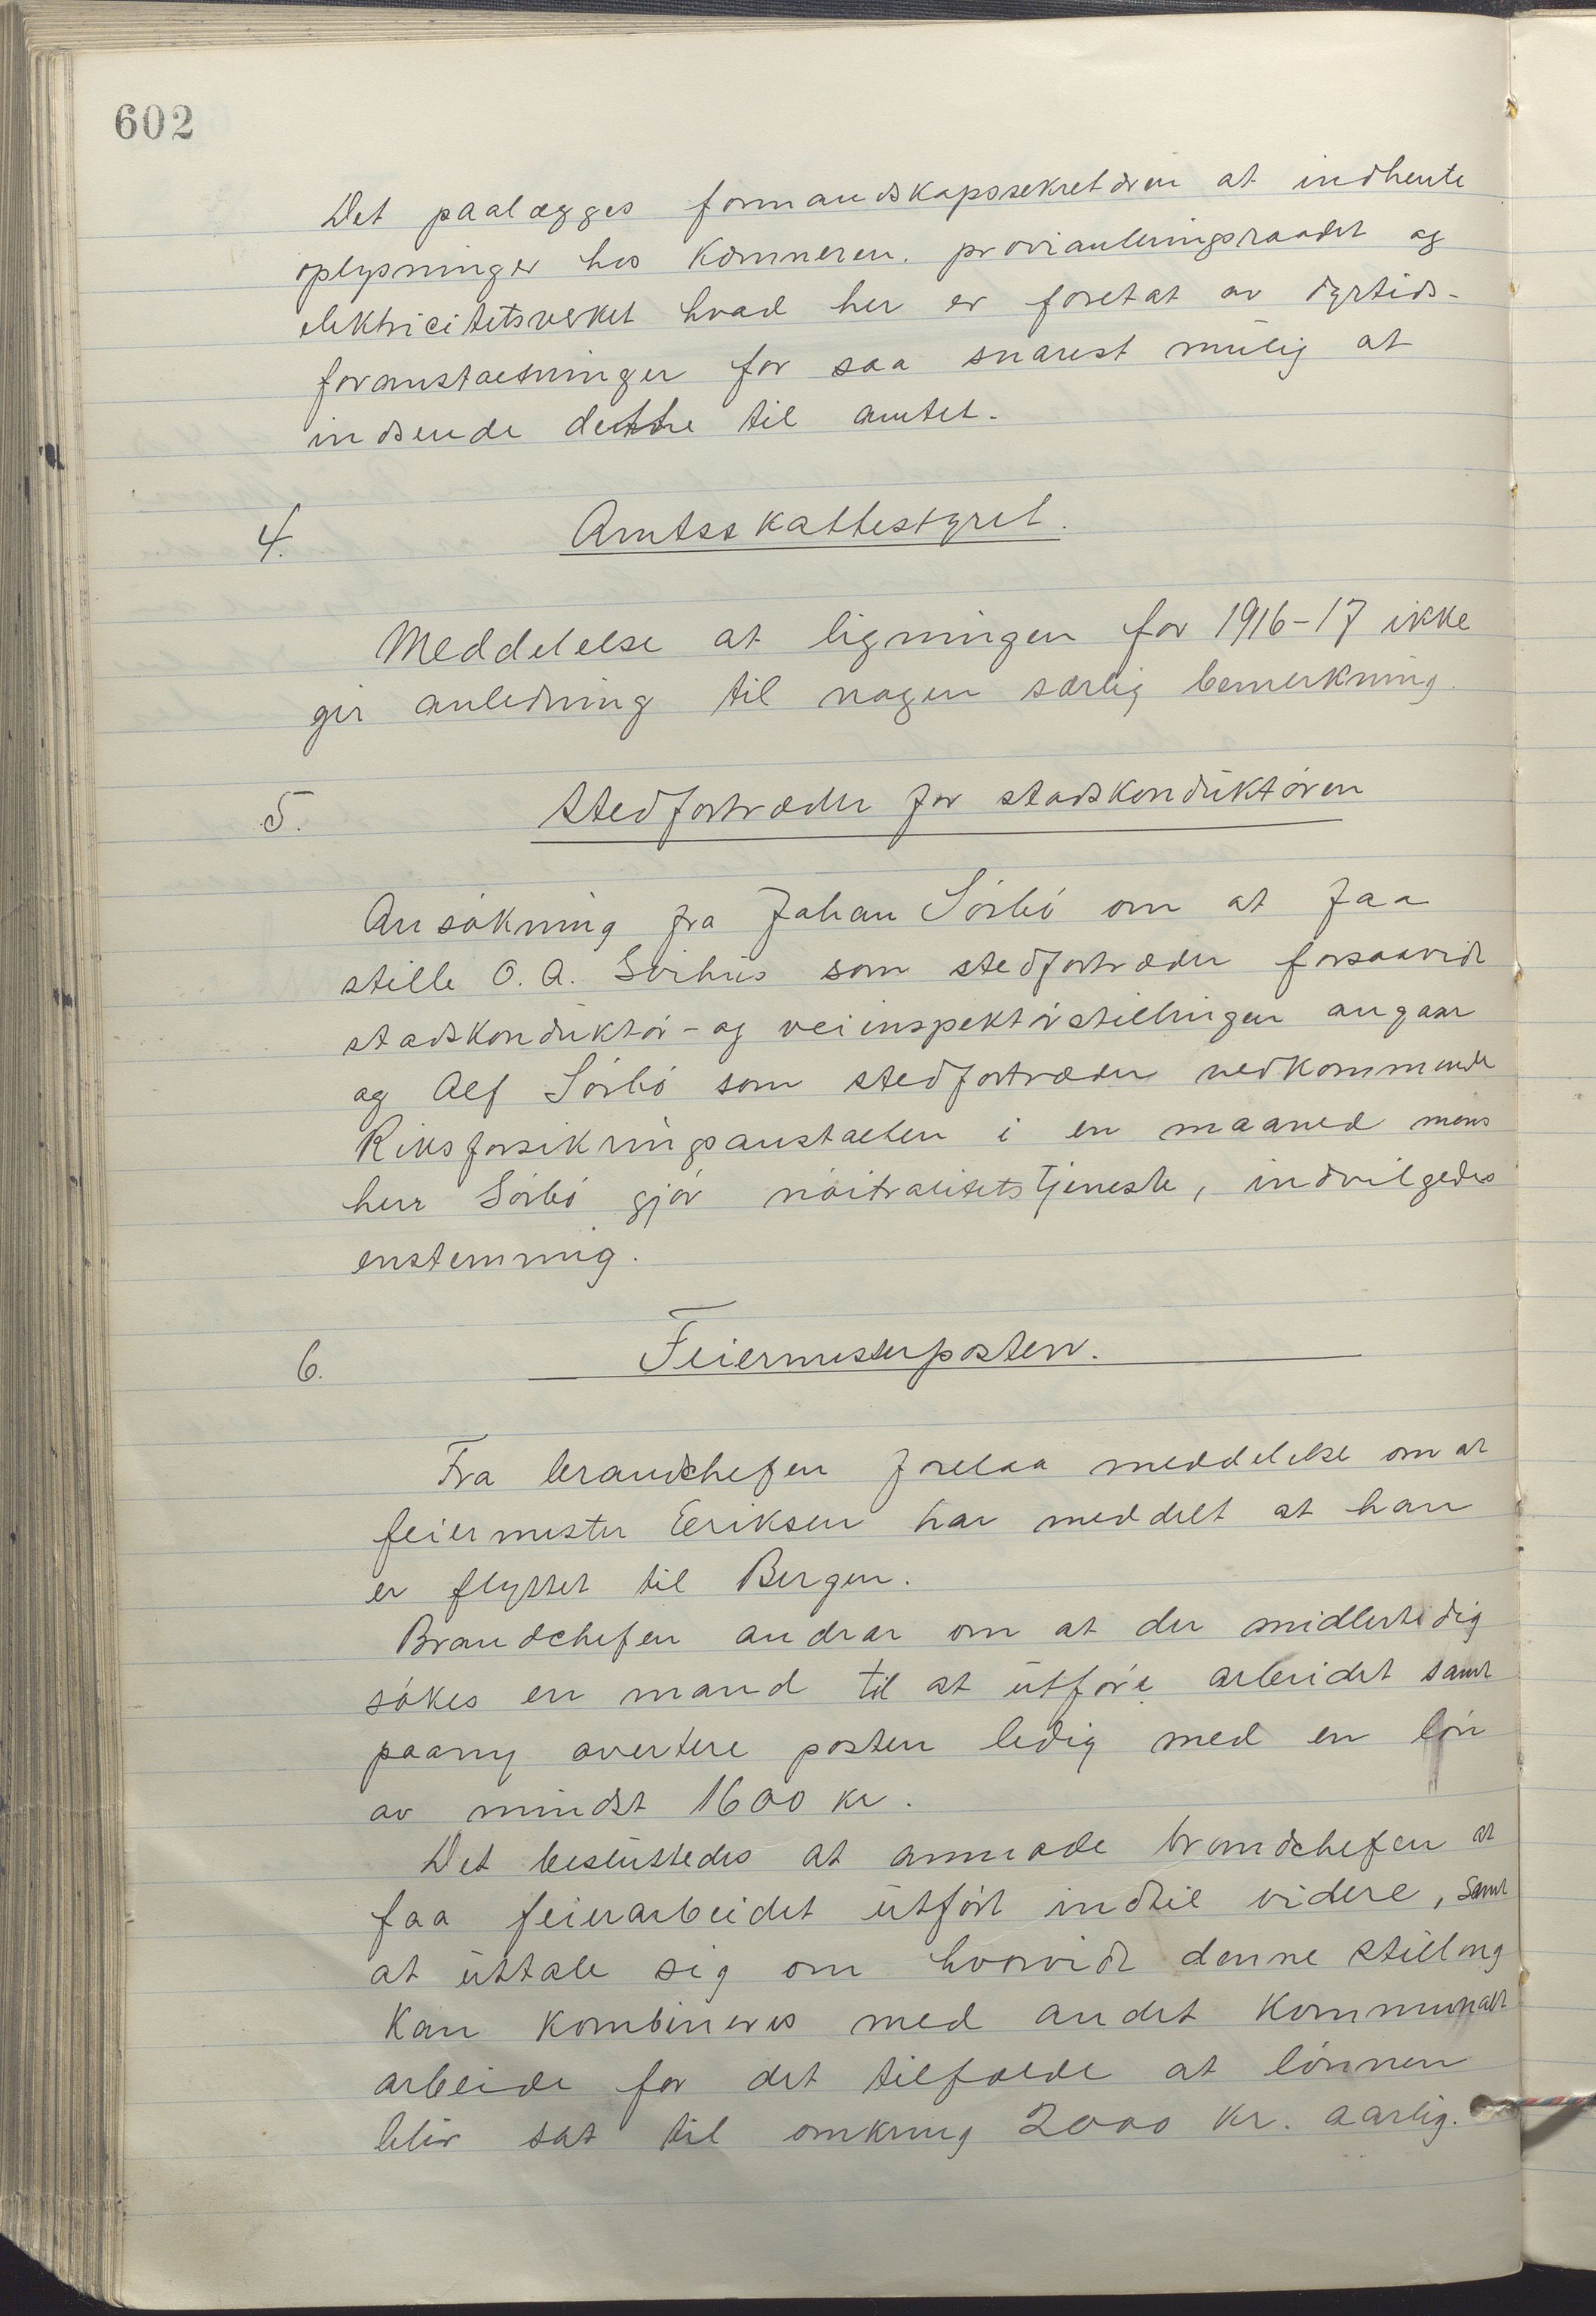 602
Det paalægges formandskapssekretæren at indhente
oplysninger hos kæmneren, provianteringsraadet og
elektricitetsverket hvad her er foretat av dyrtids-
foranstaltninger for saa snarest mulig at
indsende dette til amtet.
4. Amtsskattestyret.
Meddelelse at ligningen for 1916-17 ikke
gir anledning til nogen særlig bemerkning.
5. Stedfortræder for stadskonduktøren
Ansøkning fra Johan Sörbö om at faa
stille O. A. Svihus som stedfortræder forsaavidt
stadskonduktør- og veiinspektørstillingen angaar
og Alf Sörbö som stedfortræder vedkommende
Riksforsikringsanstalten i en maaned mens
herr Sörbö gjør nöitralitetstjeneste, indvilgedes
enstemmig.
6. Feiermesterposten.
Fra brandchefen forelaa meddelelse om at
feiermester Eeriksen har meddelt at han
er flyttet til Bergen.
Brandchefen andrar om at der midlertidig
søkes en mand til at utføre arbeidet samt
paany avertere posten ledig med en løn
av mindst 1600 kr.
Det besluttedes at anmode brandchefen at
faa feierarbeidet utført indtil videre, samt
at uttale sig om hvorvidt denne stilling
kan kombineres med andet kommunalt
arbeide for det tilfælde at lønnen
blir sat til omkring 2000 kr. aarlig.